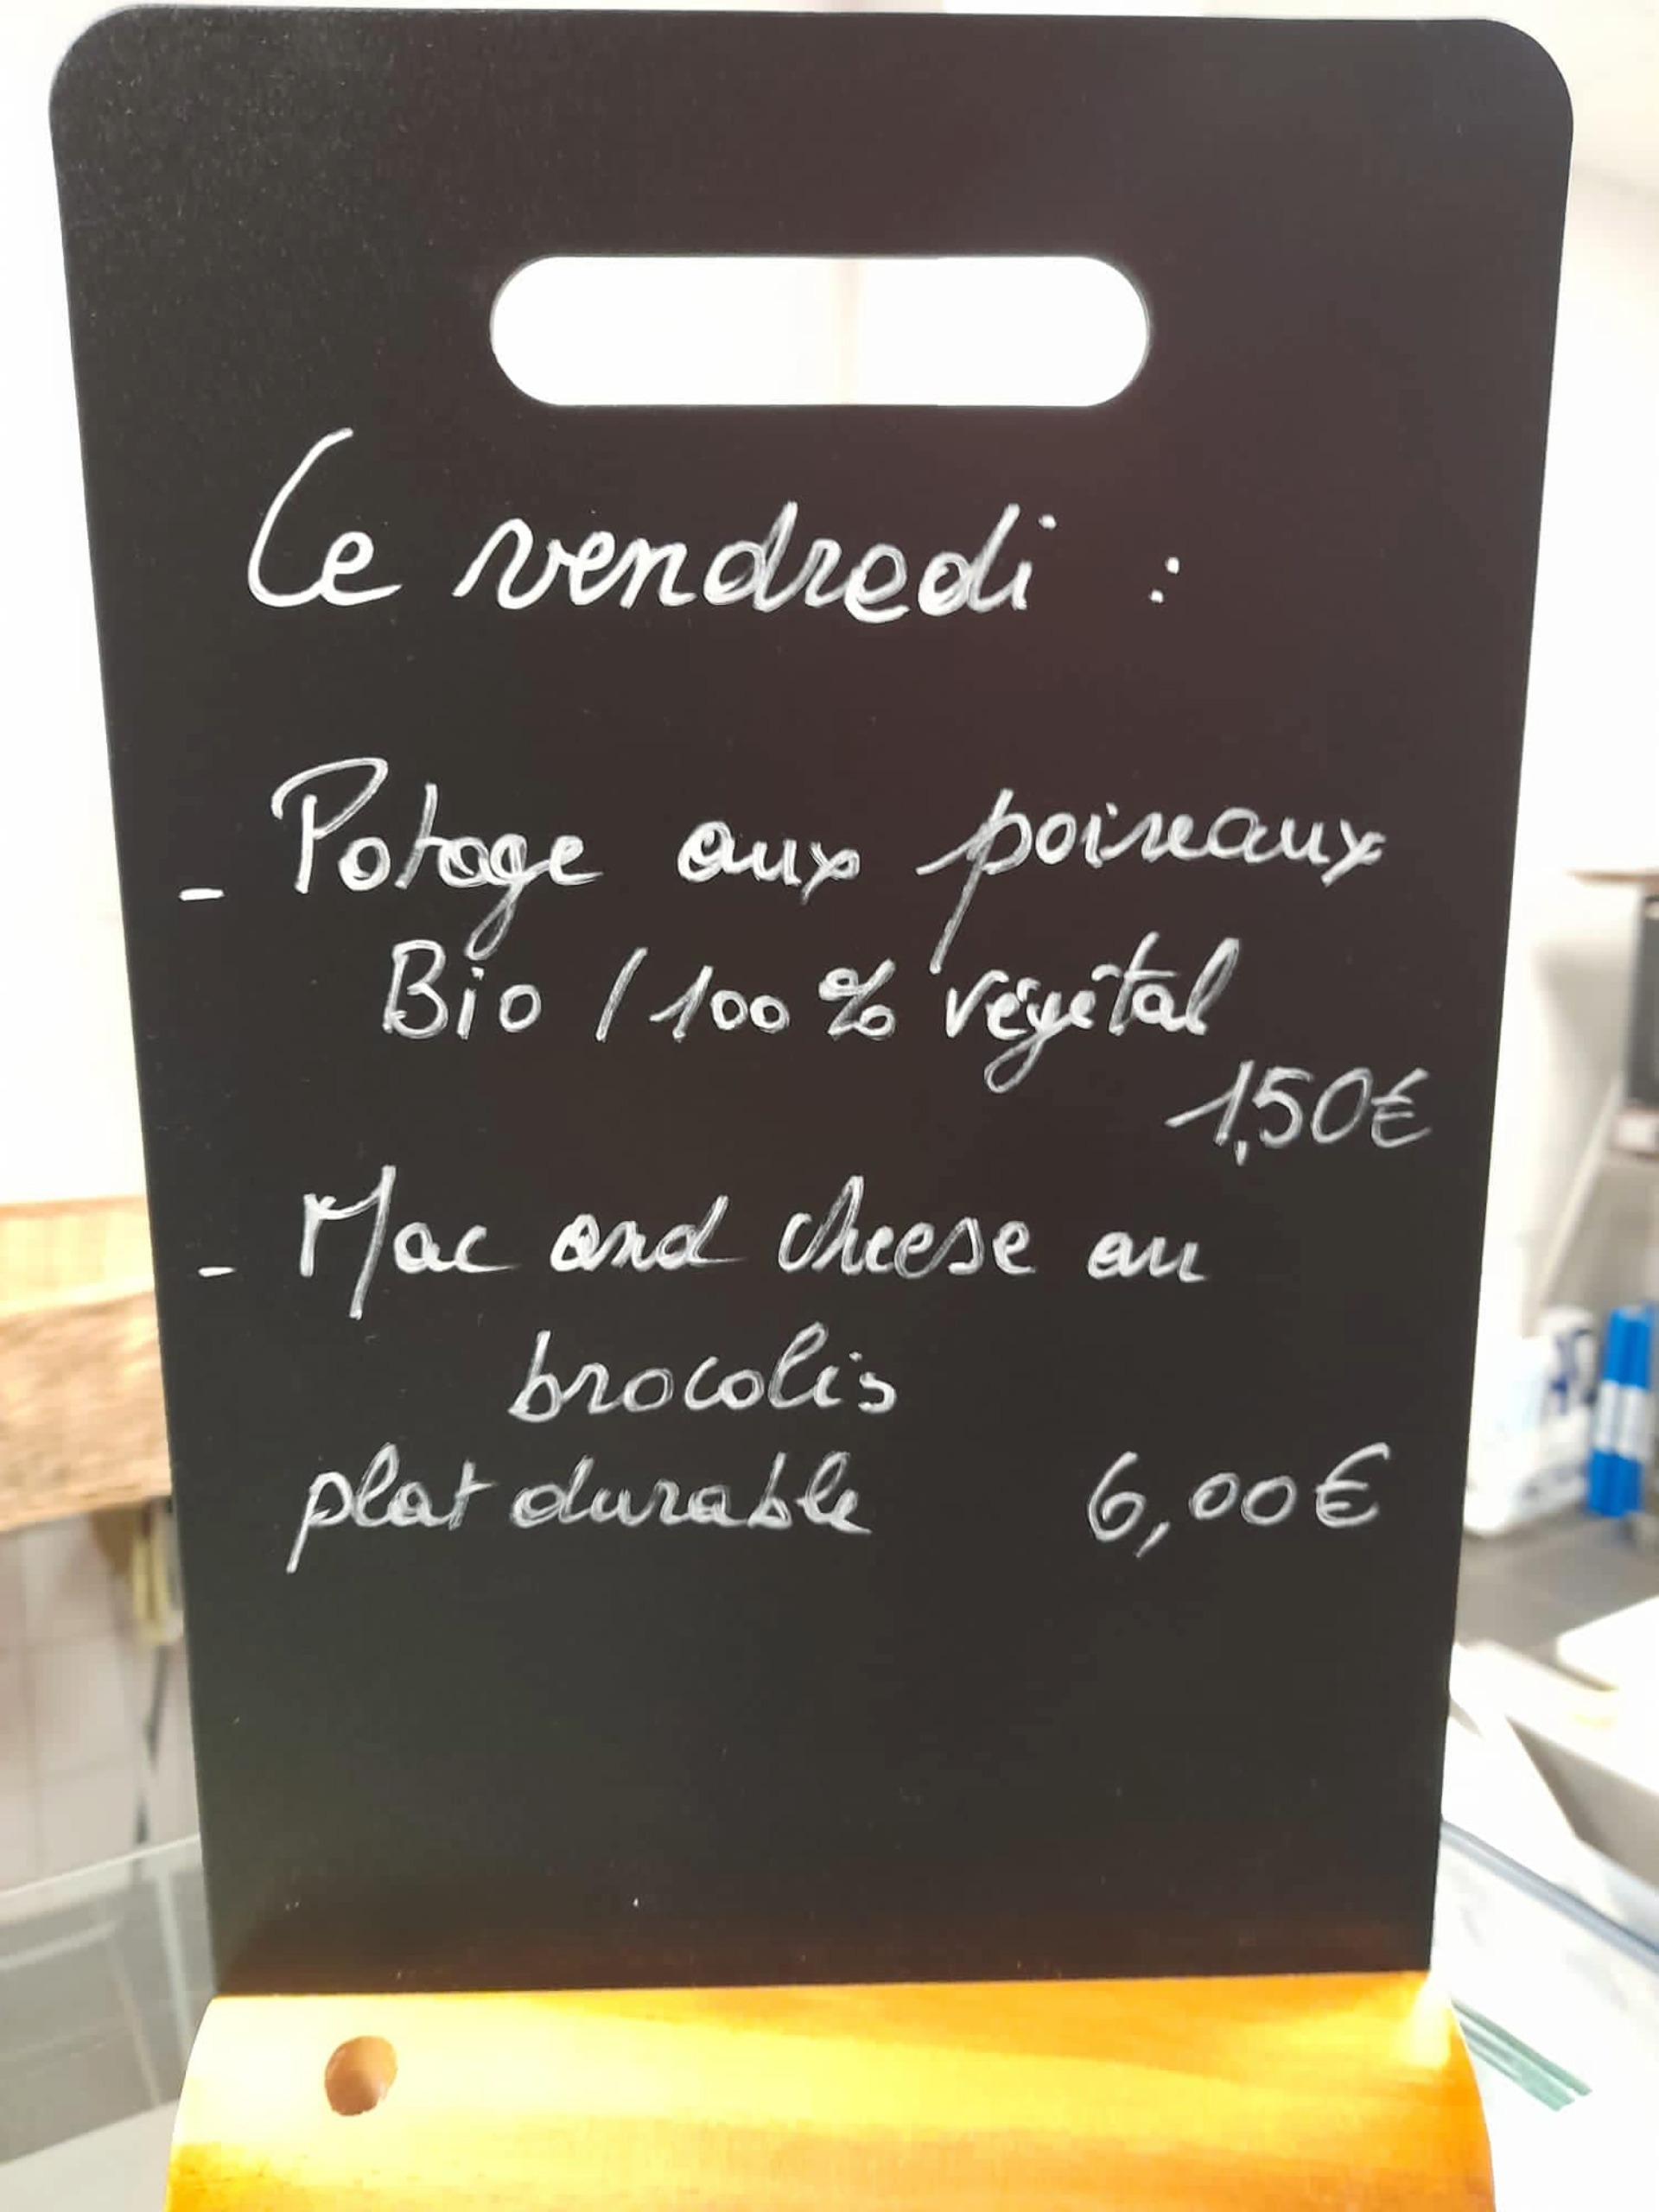 Ce vendredi :
- Potage aux poireaux
Bio / 100 % végétal
1,50€
- Mac and cheese au
brocolis
plat durable 6,00€